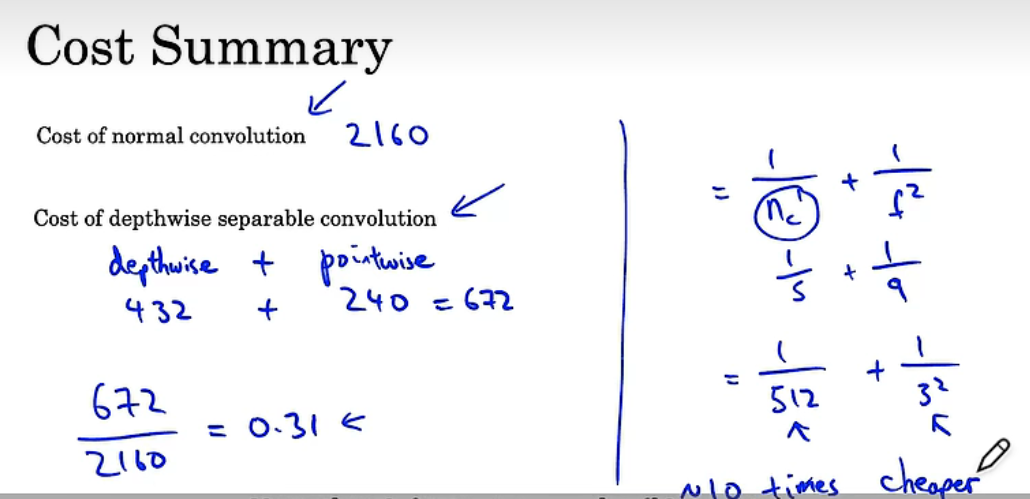 Cost Summary
Cost of normal convolution 2160
Cost of depthwise separable convolution
depthwise + pointwise
432 + 240 = 672
672 / 2160 = 0.31 ←
= 1/n_c' + 1/f²
1/5 + 1/9
= 1/512 + 1/3²
~10 times cheaper